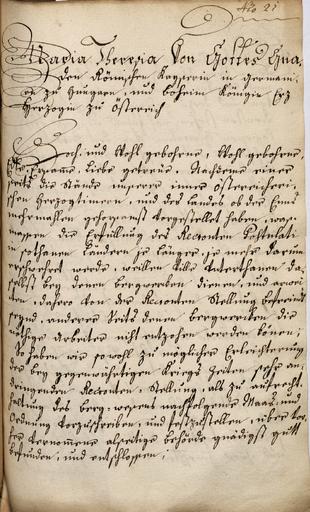 No 21
Maria Theresia Von Gottes Gna,
den Römischen Kayserin in Germani,
en zu Hungarn, und böheim Königin Erz
Herzogin zu Österreich
Hoch, und Wohl gebohrne, Wohl gebohrne,
Ersamme, Liebe getreue. Nachdeme einer
seits die Stände unserer inner Österreicheri,
schen Herzogtümern, und des Landes ob der Enns
mehrmahlen gehorsamst vorgestellet haben, was,
massen die Erfüllung des Recrouten Postulati
in sothanen Ländern je länger, je mehr darum
erschwehret werde, weillen viele Unterthanen da,
selbst bey denen bergwerken dienen, und arbei
ten, dahero von der Recrouten Stellung befreiet
seynd, anderer Seits denen bergwerken die
nöthige arbeiter nicht entzohen werden können;
So haben wir sowohl zu möglicher Erleichterung
der bey gegenwärtigen Kriegs Zeiten sehr an,
dringenden Recrouten Stellung, alß zu aufrecht,
haltung des berg-weesens nachfolgende Maas, und
Ordnung vorzuschreiben, und festzustellen, über vor,
her vernommene alseitige behörde gnädigst gutt
befunden, und entschlossen;